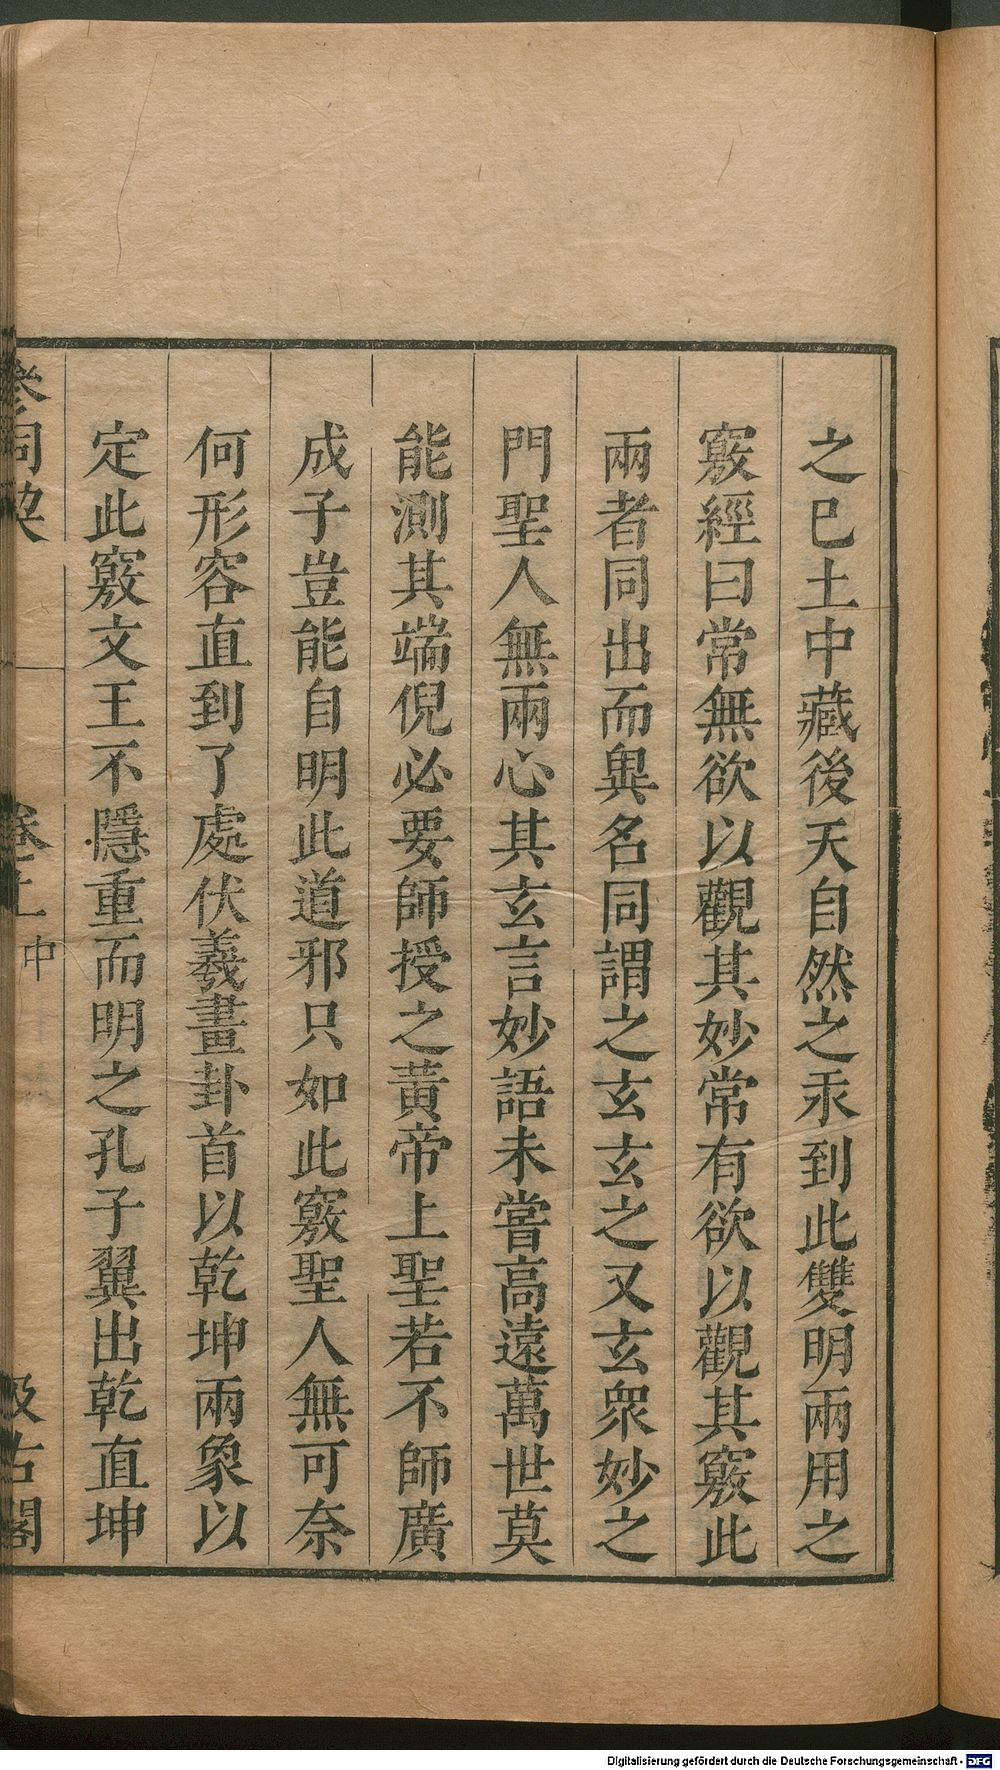 之已土中藏後天自然之汞到此雙明兩用之
竅經曰常無欲以觀其妙常有欲以觀其竅此
兩者同出而異名同謂之玄玄之又玄衆妙之
門聖人無兩心其玄言妙語未嘗高遠萬世莫
能測其端倪必要師授之黃帝上聖若不師廣
成子豈能自明此道邪只如此竅聖人無可奈
何形容直到了處伏羲畫卦首以乾坤兩象以
定此竅文王不隱重而明之孔子翼出乾直坤
參同契 卷上中 汲古閣
Digitalisierung gefördert durch die Deutsche Forschungsgemeinschaft - DFG